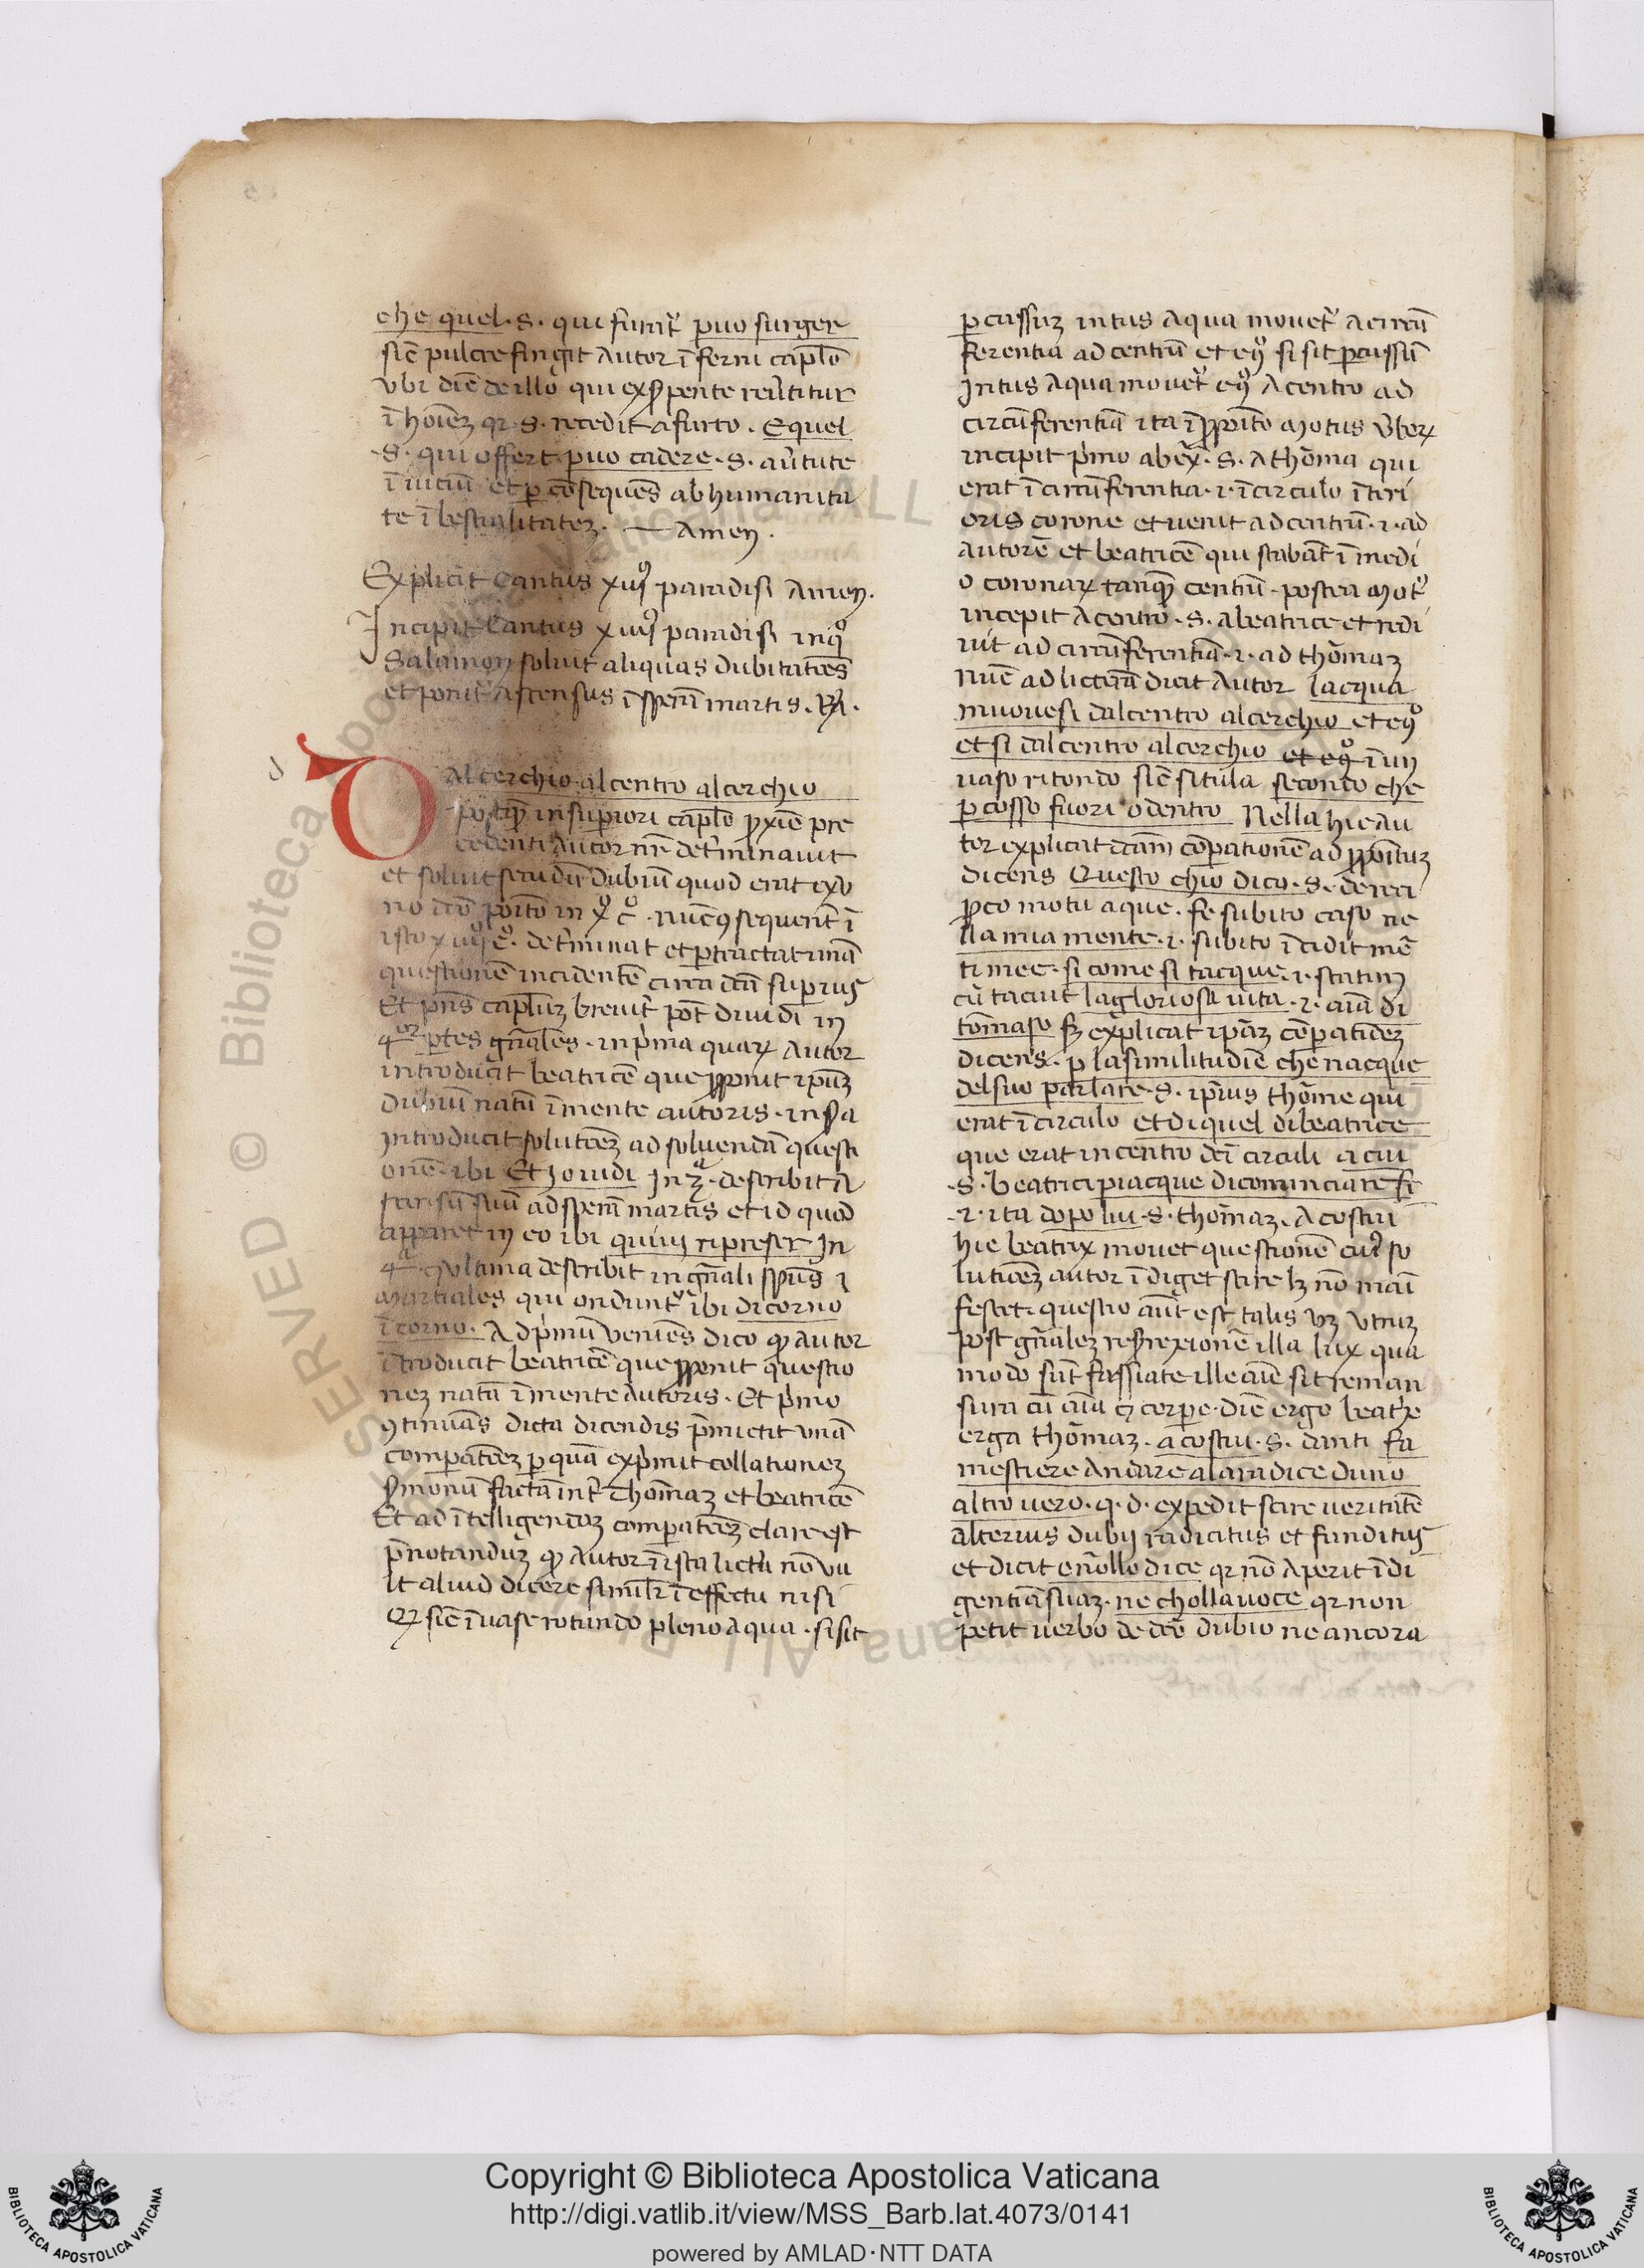 che quel·S· qui furat᷑ puo surger
sic̄ pulcre fingit Autor ī ferni capl̄o
vbi dic̄ de illo qui ex ꝑpente reūtitur
ī hoīez qꝛ·S· recedit a furto. E quel
·S· qui offert puo cadere·S· a ūtute
ī uiciū et ꝑ cōsequēs ab humanita
te ī bestialitatez. — Amen.
Explicit Cantus xiijꝰ paradisi Amen.
Incipit Cantus xiiijꝰ paradisi in qͦ
Salamon soluit aliquas dubitatōēs
et ponit᷑ ascensus ī sperā martis. Rᵃ.
Dal cerchio al centro al cerchio
postꝙ̄ in suꝑiori capl̄o ꝓxīe pre
cedenti Autor nr̄ det᷑minauit
et soluit scd̄m dubiū quod erat exv
no dc̄o poīto in xͦ cͦ· nūc ꝯsequent᷑ ī
isto xiiijͦ cͦ. det᷑minat et ꝑtractat unā
questionē incidentē circa dc̄ā suꝑius
Et pn̄s capl̄uz breuit᷑ pōt diuidi in
4ᵒʳ ꝑtes gn̄ales· in pͥma quaꝝ Autor
introducit beatricē que ꝓponit ip̄uz
dubiū natū ī mente autoris· in 2ᵃ
introducit solutōez ad soluendā questi
onē· ibi Et io uidi In 3ᵃ· describit a
scensū suū ad sperā martis et id quod
apparet in eo ibi quiui ripreser In
4ᵃ et vltima describit in gn̄ali spūs ī
martiales qui ondunt᷑ ibi di corno
ī corno. Ad pͥmū veniēs dico ꝙ autor
ītroducit beatricē que ꝓponit questio
nez natā ī mente Autoris· Et pͥmo
ꝯtinuās dicta dicendis pͥmictit vnā
comparatōez ꝑ quā expͥmit collationez
ẜmonū factā int᷑ Thomaz et beatricē
Et ad ītelligendoz comparatōez clare est
pͥnotanduz ꝙ Autor ī ista lict᷑a nō vu
lt aliud dicere simil᷑r ī effectu nisi
Qꝛ sic̄ ī uase rotundo pleno aqua· si sit
ꝑcussuz intus aqua mouet᷑ a circū
ferentia ad centrū et eꝯͦ si sit ꝑcussū
Intus aqua mouet᷑ eꝯͦ A centro ad
circūferentiā ita ī ꝓpoīto motus ūboꝝ
incipit pͥmo ab ex᷑·S· a thōma qui
erat ī circūferentia·i· ī circulo īteri
oris corone et uenit ad centrū·i· ad
autorē et beatricē qui stabāt ī medi
o coronaꝝ tanꝙ̄ centrū· postea motꝰ
incepit a centro·S· a beatrice et redi
uit ad circūferentiā·i· ad thōmaz
nūc ad licterā dicit Autor lacqua
muouesi dal centro al cerchio et eꝯͦ
et si dal centro al cerchio et eꝯͦ ī un
uaso ritondo sic̄ situla secondo che
ꝑcosso fuori o dentro Nella hic au
tor explicat dc̄am cōꝑationē ad ꝓpoītuz
dicens Questo chio dico·S· de reci
ꝓco motu aque· fe subito caso ne
lla mia mente·i· subito īcidit mē
ti mee· si come si tacque·i· statim
cū tacuit la gloriosa uita·i· aīa di
tomaso sꝫ explicat ip̄az cōꝑatiōez
dicens· ꝑ la similitudīe che nacque
del suo parlare·S· ipͥus thōme qui
erat ī circulo et di quel di beatrice
que erat in centro dc̄i circuli a cui
·S· beatrici piacque di cominciare si
·i· ita dopo lui·S· thomaz. A costui
hic beatrix mouet questionē cuiꝰ so
lutiōez autor īdiget scire lꝫ nō mai
festet· questio aūt est talis vꝫ vtruz
post gn̄alez resurrexionē illa lux qua
modo sūt fassiate ille aīe sit reman
sura cū aīa ⁊ corꝑe· dic̄ ergo beat᷑x
erga thōmaz· a costui·S· danti fa
mestiere andare ala radice duno
altro uero· q·d· expedit scire ueritatē
alterius dubij radicitus et funditus
et dicit e nollo dice qꝛ nō aperit īdi
gentiā suaz· ne cholla uoce qꝛ non
petit uerbo de dc̄o dubio ne ancora
Copyright © Biblioteca Apostolica Vaticana
http://digi.vatlib.it/view/MSS_Barb.lat.4073/0141
powered by AMLAD·NTT DATA
BIBLIOTECA APOSTOLICA VATICANA
BIBLIOTECA APOSTOLICA VATICANA